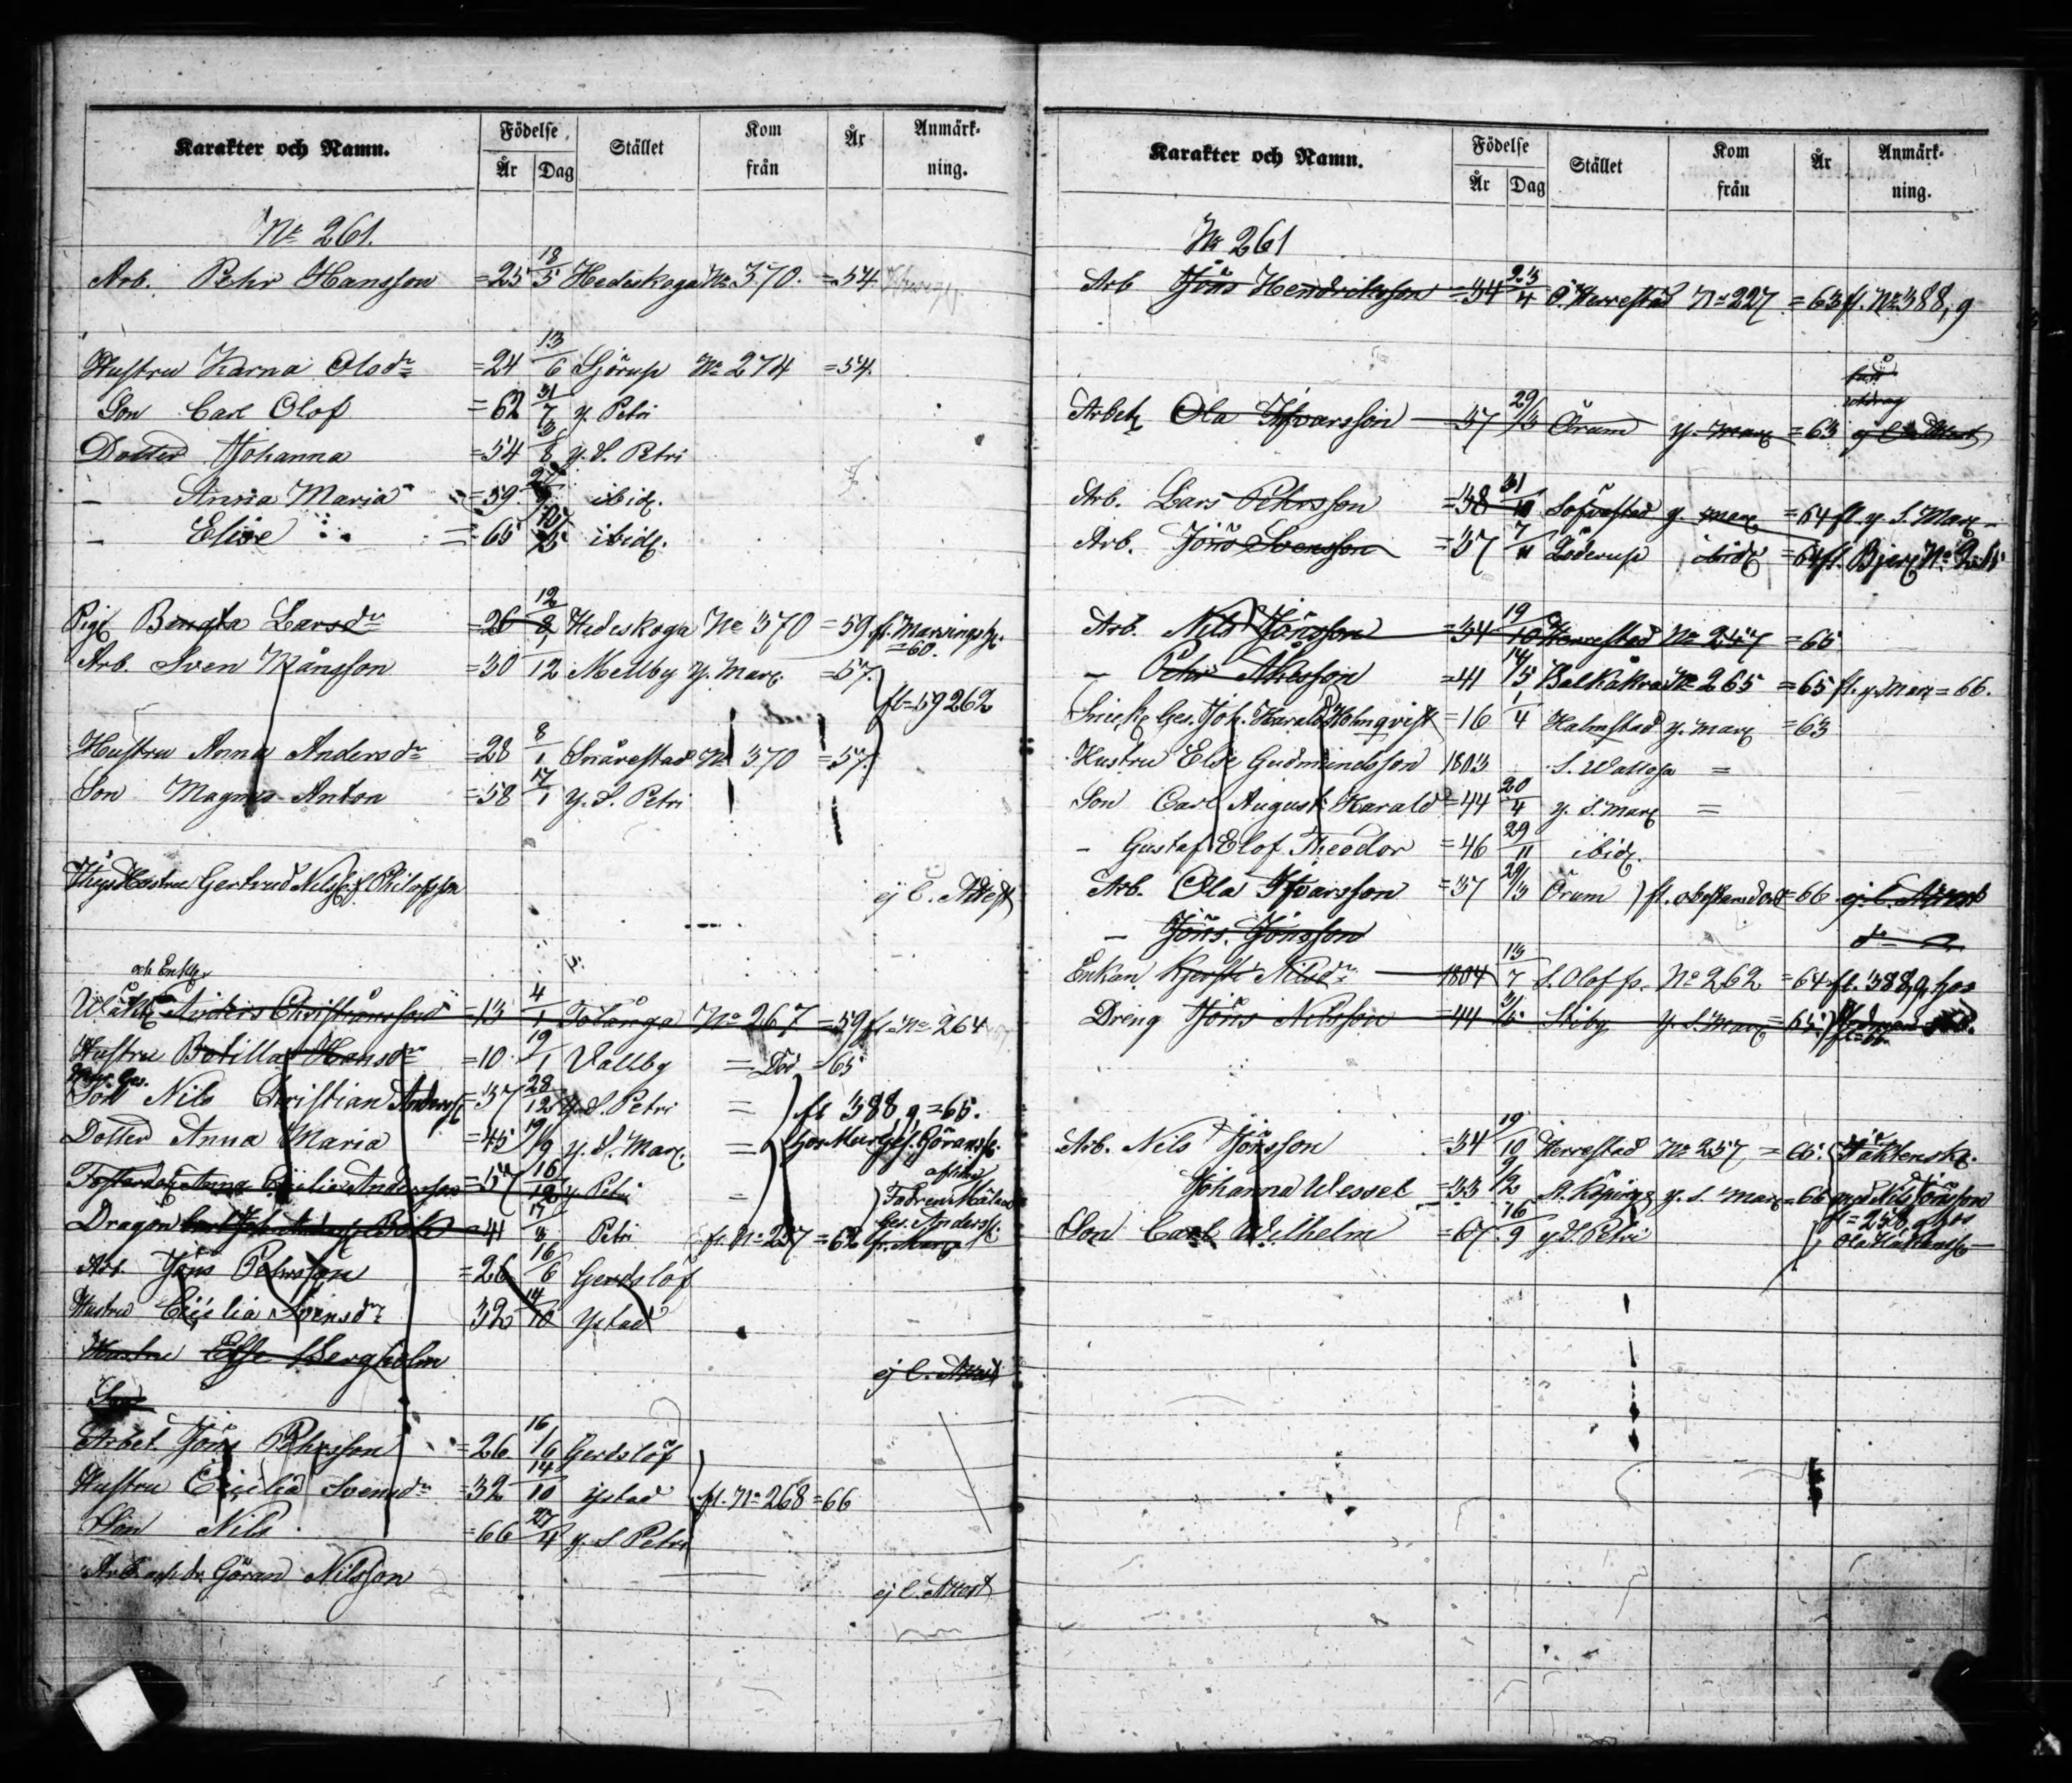 Karakter och Namn. Födelse År Dag Stället Kom från År Anmärkning.
No 261.
Arb. Pehr Hansson =25 18/5 Hedeskoga No 370. =54.
Hustru Karna Olsdr =24 13/6 Sjörup No 274 =54.
Son Carl Olof =62 31/7 y. Petri
Dotter Johanna =54 3/8 y. S. Petri
— Anna Maria =59 ibid.
— Elise =65 ibid.
Pig. Bengta Larsdr =26 12/8 Hedeskoga No 370 =59 =60.
Arb. Sven Månsson =30 /12 Mellby y. Mar. =57.
fl =59 262
Hustru Anna Andersdr =28 8/1 Snårestad No 370 =57.
Son Magnus Anton =58 17/1 y. S. Petri
Hustru Gertrud ej l. Attest
och Enkl.
Anders Christiansson =13 4/1 Tolånga No 267 =59 fl. No 264
Hustru Botilla Hansdr =10 19/1 Vallby = Död =65
Ges.
Son Nils Christian Anderss. =37 28/12 y. S. Petri = fl 388, 9 =65.
Dotter Anna Maria =45 19/9 y. S. Mar. = hos Mur Ges. Göranss.
Fosterdot. Anna Cecilia Andersson =57 16/12 y. Petri =
Dragon =41 17/3 Petri fl. No 257 =62
Arb. Jöns Pehrsson =26 16/6 Gerdslöf
Hustru Cecilia Svensdr 32 14/10 Ystad
Hustru Else Bergholm ej l. Attest
Son
Arbet. Jöns Pehrsson =26 16/6 Gerdslöf
Hustru Cecilia Svensdr =32 14/10 Ystad fl. No 268 =66
Son Nils =66 27/4 y. S Petri
Göran Nilsson ej l. Attest
Karakter och Namn. Födelse År Dag Stället Kom från År Anmärkning.
No 261
Arb Jöns Hendriksson =34 23/4 Ö. Herrestad No 227 =63 fl. No 388, 9
Arbet. Ola Ifvarsson 37 29/3 Örum y. Mar. =63
Arb. Lars Pehrsson =38 31/10 Löfvestad y. Mar. =64 fl. y. S. Mar.
Arb. Jöns Svensson =37 7/11 Löderup ibid. =64 fl.
Arb. Nils Jönsson =34 19/10 Herrestad No 257 =65
— Pehr Åkesson =41 14/5 Balkåkra No 265 =65 fl. y. Mar. =66.
Snick. Ges. Joh. Harald Holmqvist =16 1/4 Halmstad y. Mar. =63
Hustru Else Gudmundsson 1803 S. Wallösa =
Son Carl August Harald =44 20/4 y. S. Mar. =
— Gustaf Elof Theodor =46 29/11 ibid.
Arb. Ola Ifvarsson =37 29/3 Örum fl. =66 ej l. Attest
— Jöns Jönsson
Enkan Kjersti Nilsdr 1804 13/7 S. Olof No 262 =64 fl. 388, 9 hos
Dreng Jöns Nilsson =44 3/5 Stiby y. S. Mar. =65
Arb. Nils Jönsson =34 19/10 Herrestad No 257 =65.
Johanna Wessel =33 9/12 St. Köpinge y. S. Mar. =66 med Nils Jönsson
Son Carl Wilhelm =67. 16/9 y. S Petri fl =258, 9 hos
Ola Håkanss.